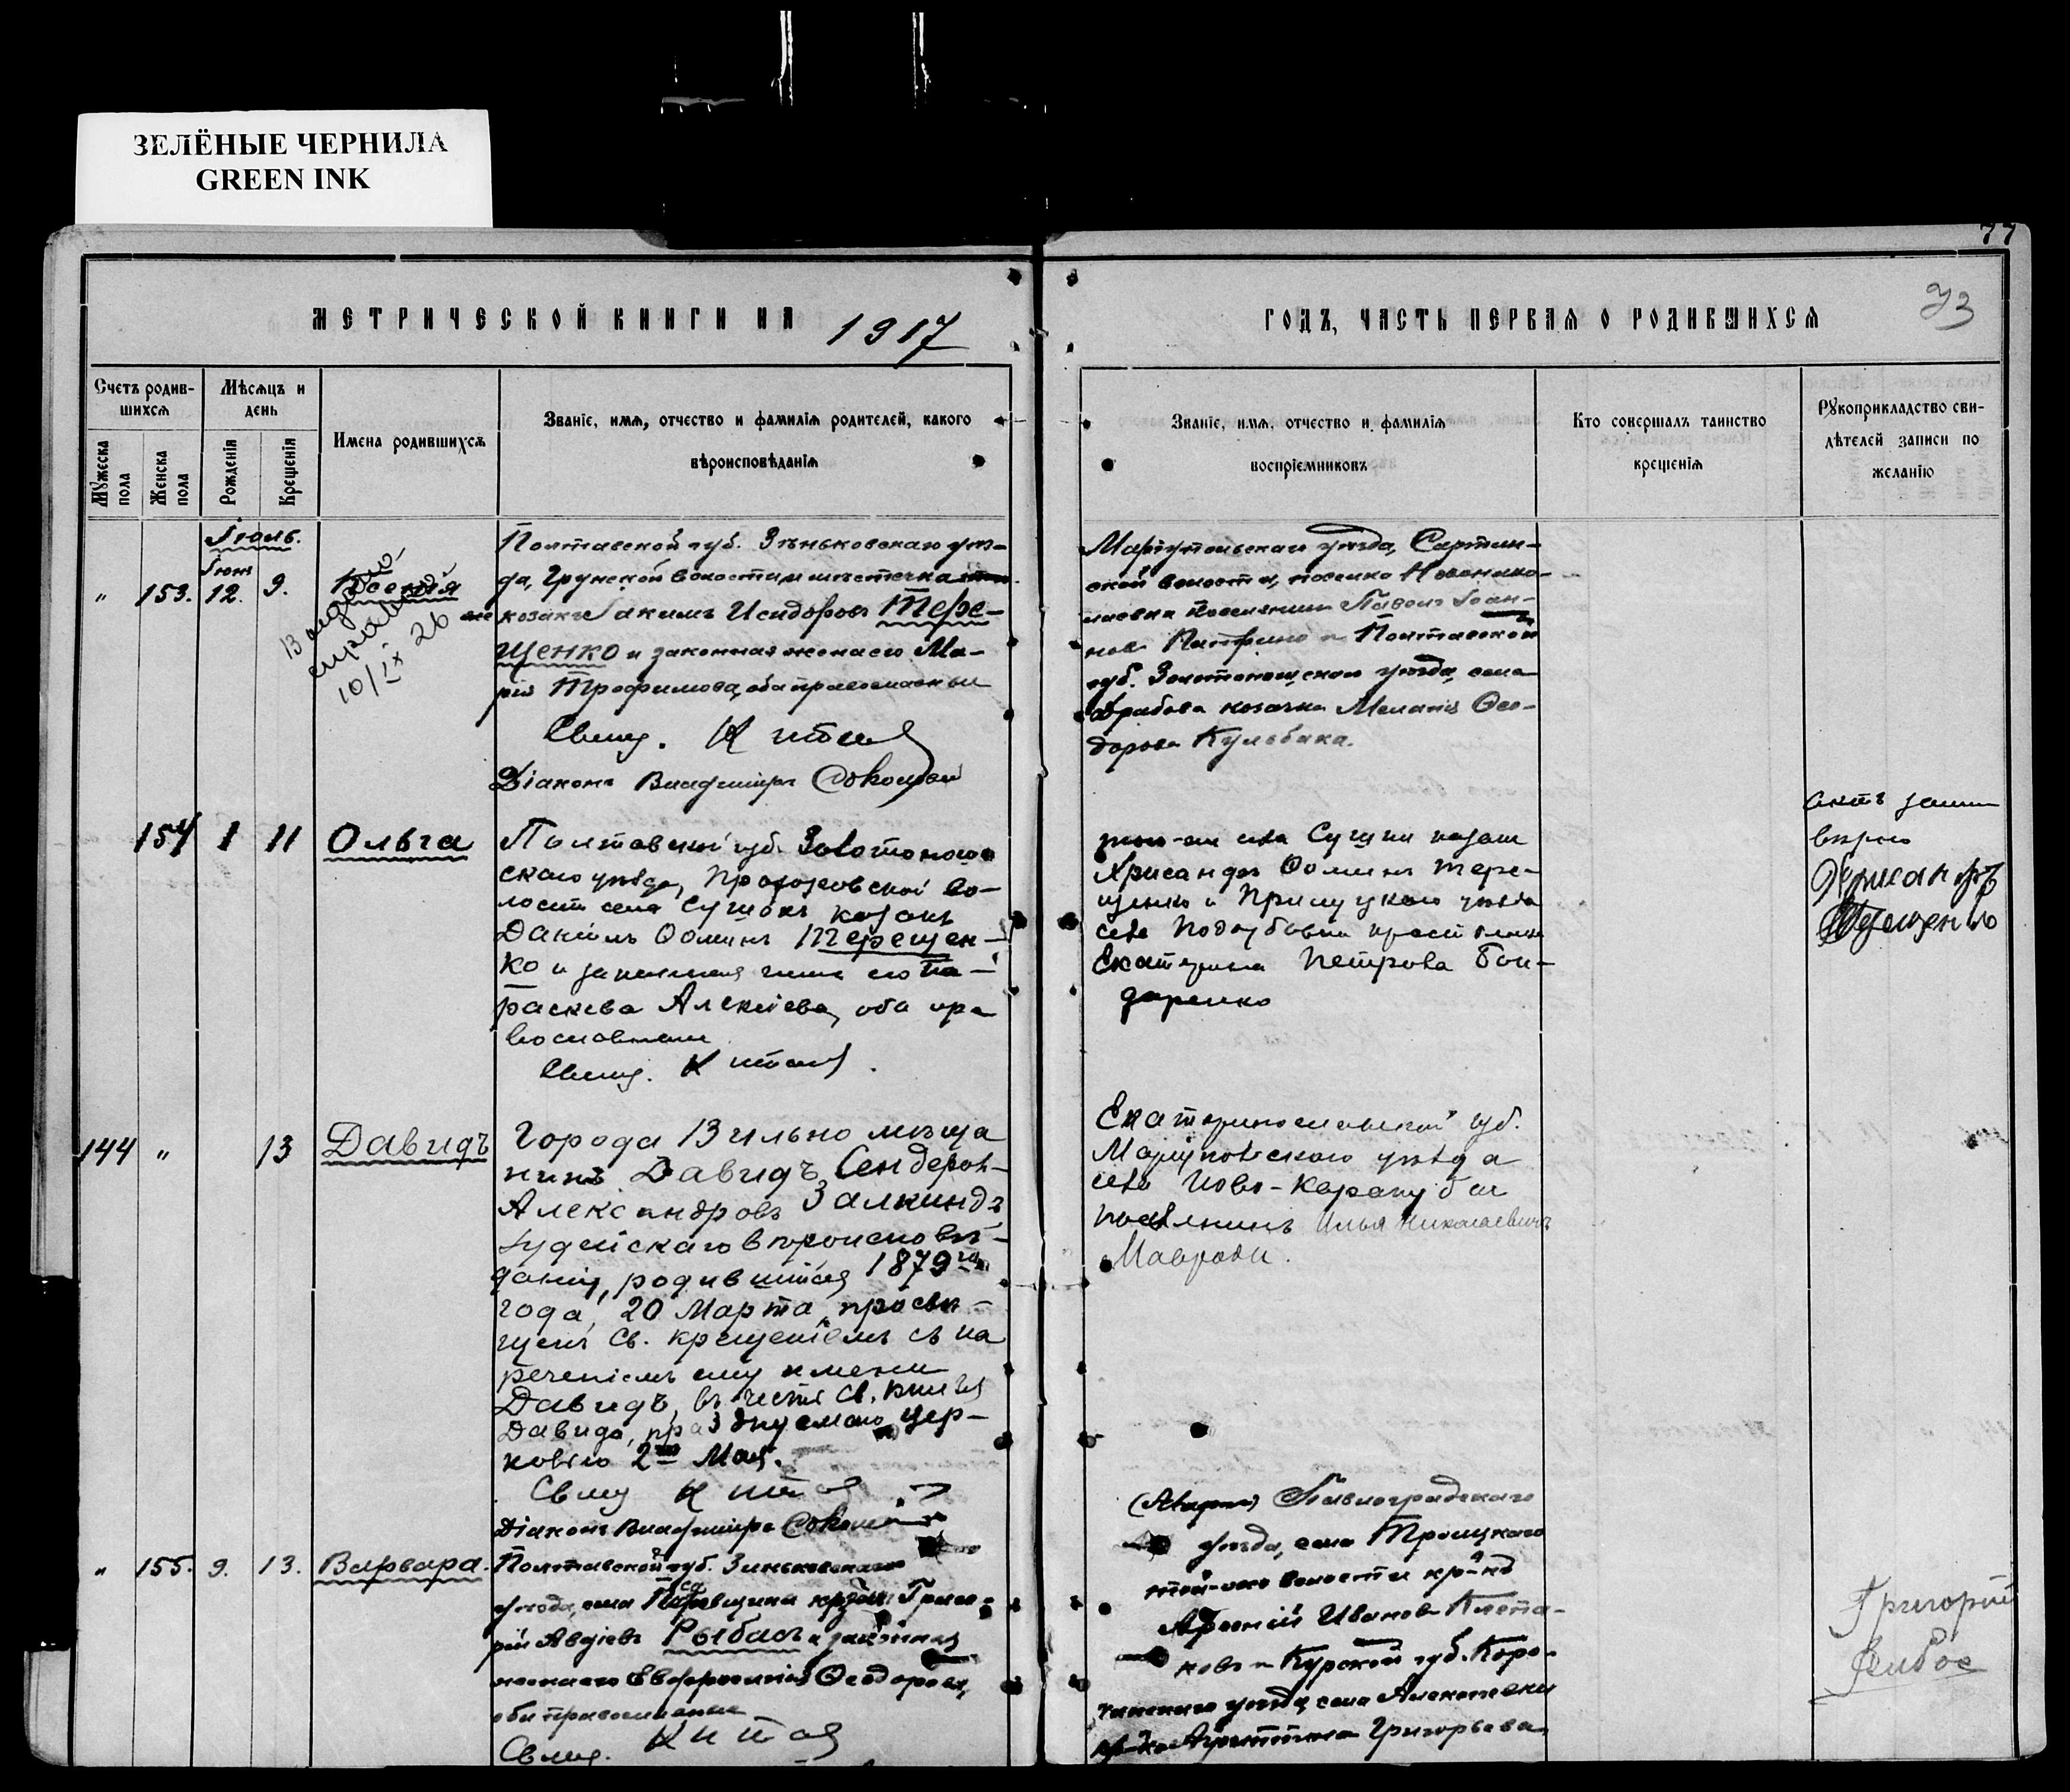 ЗЕЛЁНЫЕ ЧЕРНИЛА
GREEN INK
77
73
МЕТРИЧЕСКОЙ КНИГИ НА 1917
ГОДЪ, ЧАСТЬ ПЕРВАЯ О РОДИВШИХСЯ
Счетъ родив-
шихся
Мѣсяцъ и
день
Мужеска
пола
Женска
пола
Рожденія
Крещенія
Имена родившихся
Званіе, имя, отчество и фамилія родителей, какого
вѣроисповѣданія
Званіе, имя, отчество и фамилія
воспріемниковъ
Кто совершалъ таинство
крещенія
Рукоприкладство сви-
дѣтелей записи по
желанію
Іюль.
Іюня
" 153. 12. 9.
10/IX 26
Полтавской губ. Зѣньковскаго уѣз-
да, Грунской волости мѣстечка
козакъ Іакимъ Исидоровъ Тере-
щенко и законная жена его Ма-
рія Трофимова, оба православные
Свящ. Китай
Діаконъ Владиміръ
Маріупольскаго уѣзда, Сартан-
ской волости, поселка
поселянинъ Павелъ Іоан-
новъ и Полтавской
губ. Золотоношскаго уѣзда, села
козачка Меланія Ѳео-
дорова Кульбака.
154 1 11 Ольга
Полтавской губ. Золотонош
скаго уѣзда, во-
лости села Сушокъ козакъ
Даніилъ Ѳоминъ Терещен-
ко и законная жена его Па-
раскева Алексіева, оба пра
вославные
Свящ. Китай.
села Сушки козакъ
Хрисанфъ Ѳоминъ Тере-
щенко и Прилуцкаго уѣзда
села Поддубовки
Екатерина Петрова Бон-
даренко
вѣрно
Хрисанфъ
Терещенко
144 " 13 Давидъ
Города Вильно мѣща
нинъ Давидъ Сендеров-
Александровъ Залкиндъ
Іудейскаго вѣроисповѣ-
данія, родившійся 1879го
года, 20 Марта, просвѣ-
щенъ Св. крещеніемъ съ на
реченіемъ ему имени
Давидъ, въ честь Св. князя
Давида, празднуемаго цер-
ковью 2го Мая.
Свящ. Китай
Діаконъ Владиміръ
Екатеринославской губ.
Маріупольскаго уѣзда
села Ново-Каракубы
поселянинъ Илья Николаевичъ
Мавроди.
" 155. 9. 13. Варвара.
Полтавской губ. Зиньковскаго
уѣзда, села козакъ Григо-
рій Авдіевъ Рыбасъ и законная
жена его Евфросинія Ѳеодорова,
оба православные
Свящ. Китай
Павлоградскаго
уѣзда, села Троицкаго
той-же волости кр-нъ
Иванов
и Курской губ. Коро-
чанскаго уѣзда, села Алексѣевки
кр-ка Григорьева
Григорій